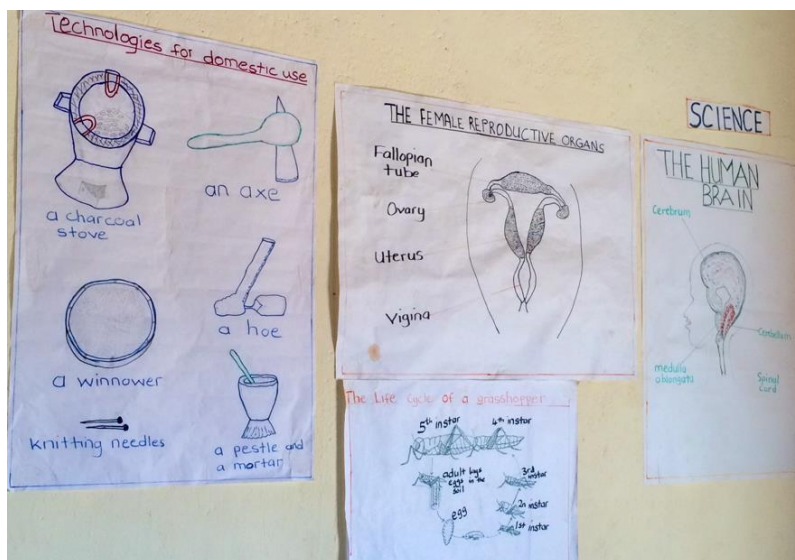 Technologies for domestic use
a charcoal
stove
an axe
a winnower
a hoe
knitting needles
a pestle and
a mortar
THE FEMALE REPRODUCTIVE ORGANS
Fallopian
tube
Ovary
Uterus
Vigina
The Life Cycle of a grasshopper
5th instar
4th instar
adult lays
eggs in the
soil
3rd
instar
egg
2n instar
1st instar
SCIENCE
THE HUMAN
BRAIN
Cerebrum
Cerebellum
medulla
oblongata
Spinal
Cord